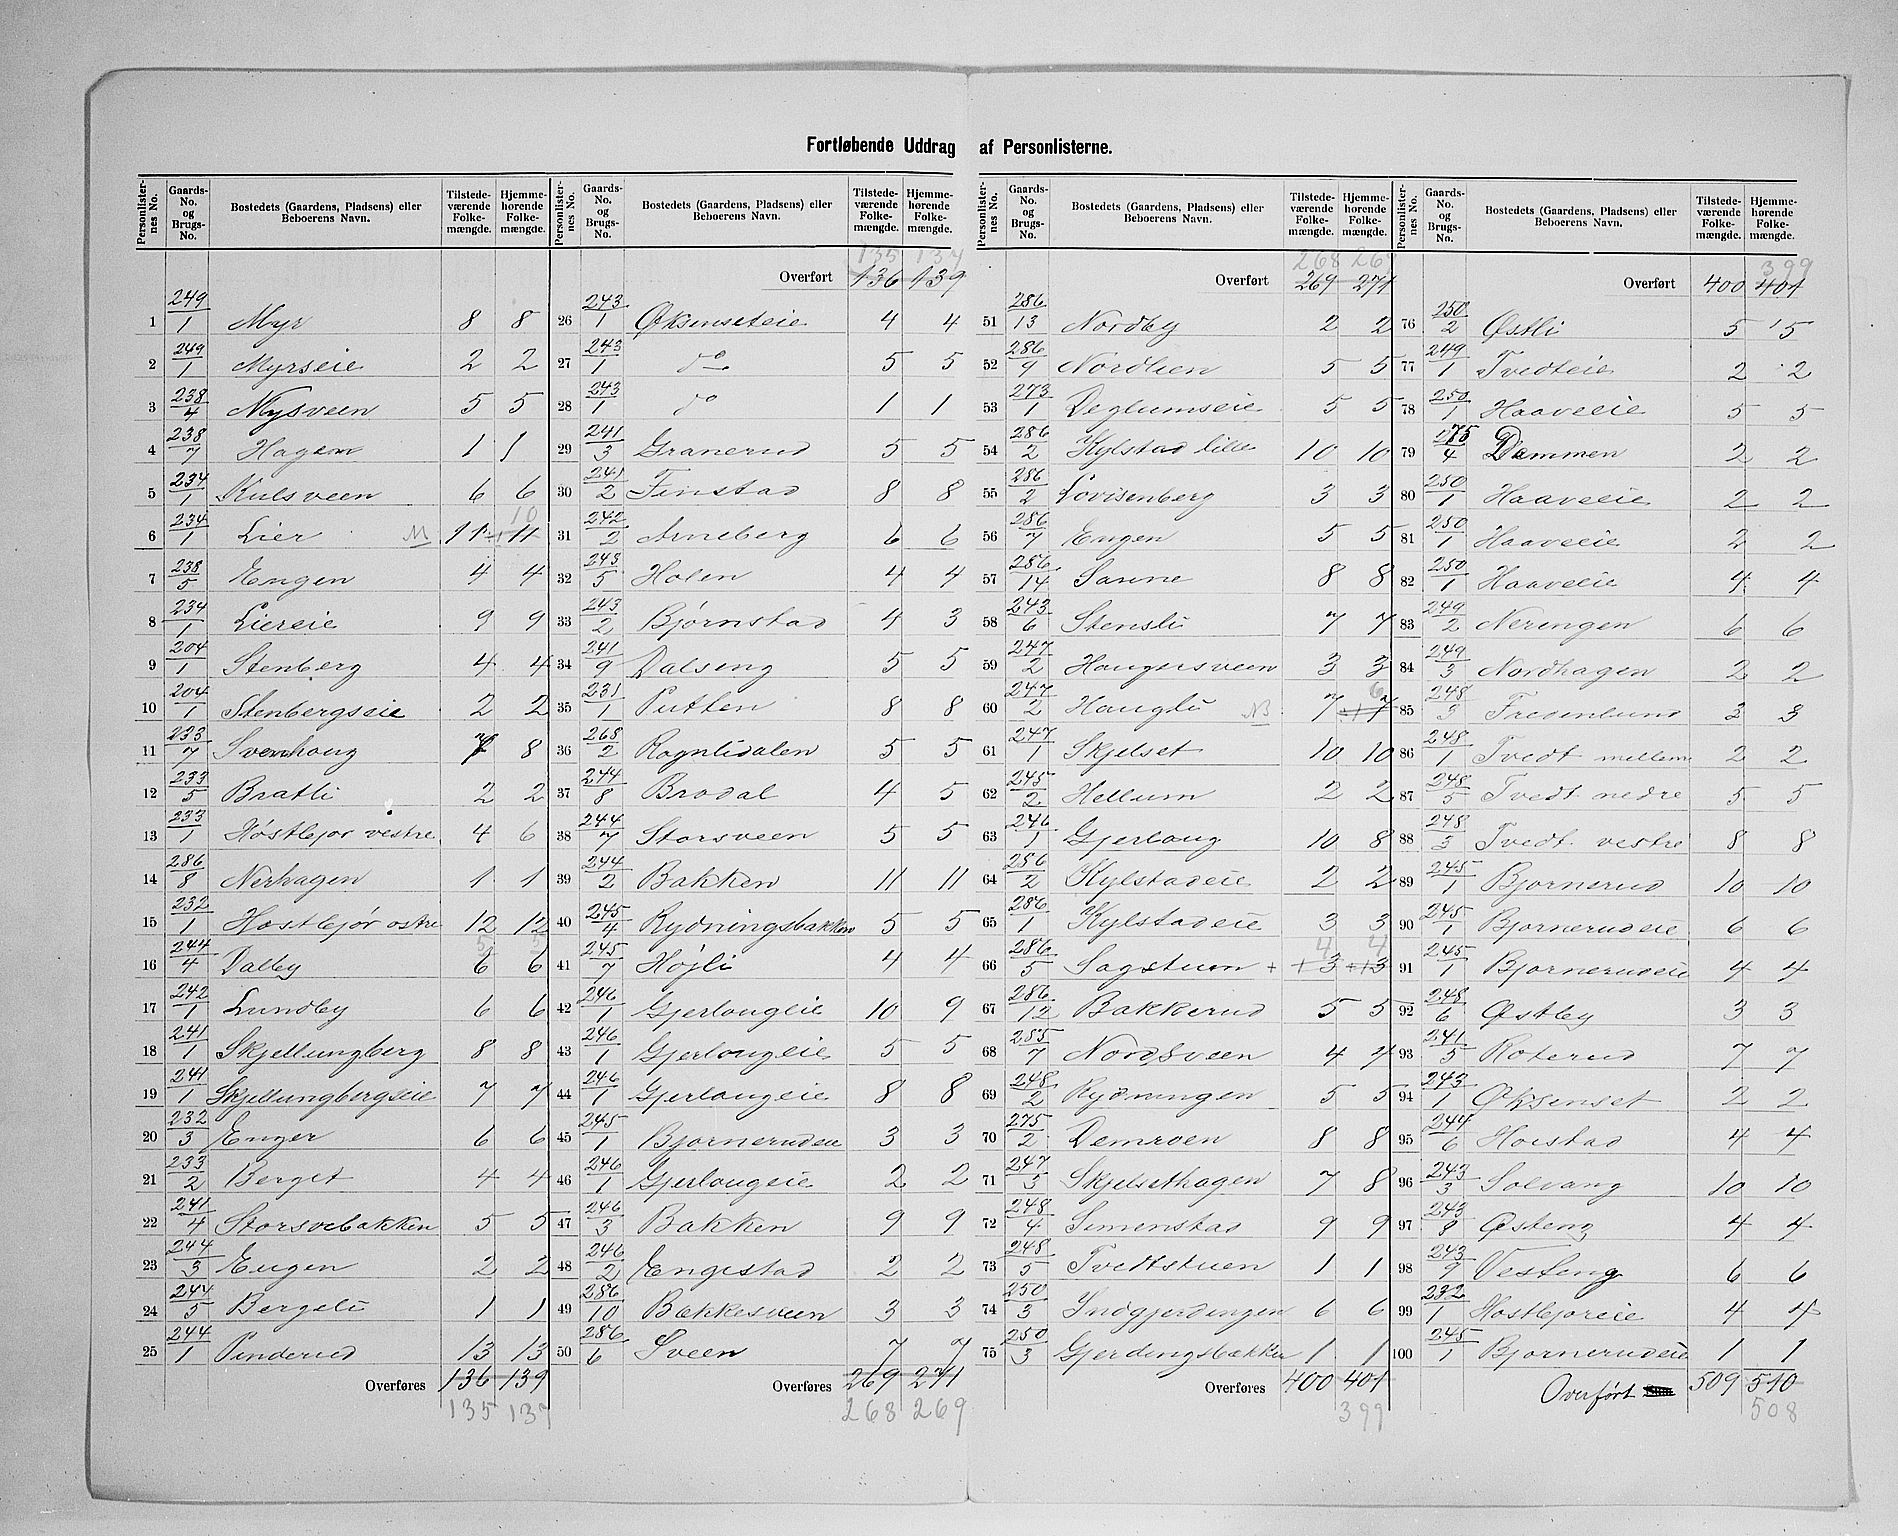 Fortløbende Uddrag af Personlisterne.
Personlisternes No. | Gaards-No. og Brugs-No. | Bostedets (Gaardens, Pladsens) eller Beboerens Navn. | Tilstedeværende Folkemængde. | Hjemmehørende Folkemængde.
1 249/1 Myr 8 8
2 249/1 Myrseie 2 2
3 238/4 Nysveen 5 5
4 238/7 Hagen 1 1
5 234/1 Kulsveen 6 6
6 234/1 Lier M 11 11 10
7 238/5 Engen 4 4
8 234/1 Liereie 9 9
9 204/1 Stenberg 4 4
10 204/1 Stenbergseie 2 2
11 233/7 Svenhaug 7 8
12 233/5 Bratli 2 2
13 233/1 Høstbjor vestre 4 6
14 286/8 Nerhagen 1 1
15 232/1 Høstbjør østre 12 12
16 244/4 Dalby 6 6 5 5
17 242/1 Lundby 6 6
18 241/1 Skjellungberg 8 8
19 241/1 Skjellungbergseie 7 7
20 232/3 Enger 6 6
21 233/2 Berget 4 4
22 241/4 Storsvebakken 5 5
23 244/3 Engen 2 2
24 244/5 Bergeli 1 1
25 244/1 Pinderud 13 13
Overføres 136 139
135 137
Personlisternes No. | Gaards-No. og Brugs-No. | Bostedets (Gaardens, Pladsens) eller Beboerens Navn. | Tilstedeværende Folkemængde. | Hjemmehørende Folkemængde.
135 137
Overført 136 139
26 243/1 Øksenseteie 4 4
27 243/1 do 5 5
28 243/1 do 1 1
29 241/3 Granerud 5 5
30 241/2 Finstad 8 8
31 242/2 Arneberg 6 6
32 243/5 Holen 4 4
33 243/2 Bjørnstad 4 3
34 241/9 Dalseng 5 5
35 231/1 Putten 8 8
36 268/2 Rognlidalen 5 5
37 244/8 Brodal 4 5
38 244/7 Storsveen 5 5
39 244/2 Bakken 11 11
40 245/4 Rydningsbakken 5 5
41 245/7 Højli 4 4
42 246/1 Gjerlaugeie 10 9
43 246/1 Gjerlaugeie 5 5
44 246/1 Gjerlaugeie 8 8
45 245/1 Bjørnerudeie 3 3
46 246/1 Gjerlaugeie 2 2
47 246/3 Bakken 9 9
48 246/2 Engestad 2 2
49 286/10 Bækkesveen 3 3
50 286/6 Sveen 7 7
Overføres 269 271
268 269
Personlisternes No. | Gaards-No. og Brugs-No. | Bostedets (Gaardens, Pladsens) eller Beboerens Navn. | Tilstedeværende Folkemængde. | Hjemmehørende Folkemængde.
268 269
Overført 269 271
51 286/13 Nordby 2 2
52 286/9 Nordlien 5 5
53 273/1 Deglumseie 5 5
54 286/2 Kylstad lille 10 10
55 286/2 Lovisenberg 3 3
56 286/7 Engen 5 5
57 286/14 Sanne 8 8
58 243/6 Stensli 7 7
59 247/2 Haugersveen 3 3
60 247/2 Haugli NB 7 7 6
61 247/1 Skjelset 10 10
62 245/2 Hellum 2 2
63 246/1 Gjerlaug 10 8
64 286/2 Kylstadeie 2 2
65 286/1 Kylstadeie 3 3
66 286/5 Sagstuen + 3 3 4 4
67 286/12 Bakkerud 5 5
68 285/7 Nordsveen 4 4
69 248/2 Rydningen 5 5
70 275/2 Demroen 8 8
71 247/3 Skjelsethagen 7 8
72 248/4 Simenstad 9 9
73 248/5 Tvedtstuen 1 1
74 250/3 Indgjerdingen 6 6
75 250/3 Gjerdingsbækken 1 1
Overføres 400 401
399
Personlisternes No. | Gaards-No. og Brugs-No. | Bostedets (Gaardens, Pladsens) eller Beboerens Navn. | Tilstedeværende Folkemængde. | Hjemmehørende Folkemængde.
399
Overført 400 401
76 250/2 Østli 5 5
77 249/1 Tvedteie 2 2
78 250/1 Haaveeie 5 5
79 275/4 Dammen 2 2
80 250/1 Haaveeie 2 2
81 250/1 Haaveeie 2 2
82 250/1 Haaveeie 4 4
83 249/2 Neringen 6 6
84 249/3 Nordhagen 2 2
85 248/3 Fredenlund 3 3
86 248/1 Tvedt mellem 2 2
87 248/5 Tvedt nedre 5 5
88 248/3 Tvedt vestre 8 8
89 245/1 Bjørnerud 10 10
90 245/1 Bjørnerudeie 6 6
91 245/1 Bjørnerudeie 4 4
92 248/6 Østby 3 3
93 241/5 Roterud 7 7
94 243/1 Øksenset 2 2
95 244/6 Hoistad 4 4
96 243/3 Solvang 10 10
97 243/8 Østeng 4 4
98 243/9 Vesteng 6 6
99 232/1 Høstbjoreie 4 4
100 245/1 Bjørnerudeie 1 1
Overført 509 510
508